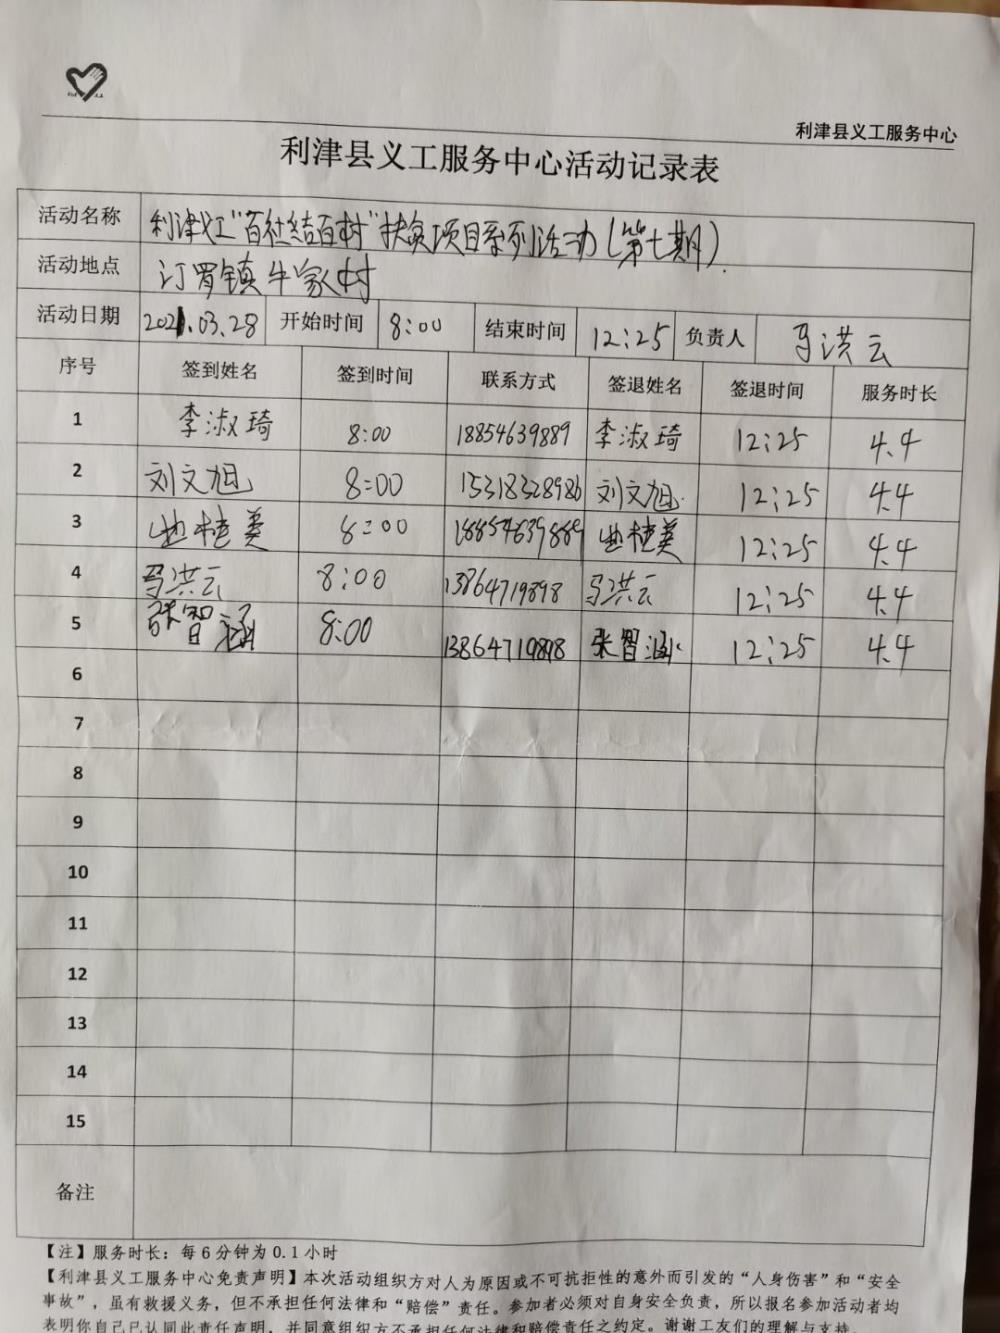 利津县义工服务中心
利津县义工服务中心活动记录表
活动名称 利津义工"百社结百村"扶贫项目系列活动(第七期).
活动地点 汀罗镇牛家村
活动日期 2021.03.28 开始时间 8:00 结束时间 12:25 负责人 马洪云
序号 签到姓名 签到时间 联系方式 签退姓名 签退时间 服务时长
1 李淑琦 8:00 18854639889 李淑琦 12:25 4.4
2 刘文旭 8:00 15318328986 刘文旭 12:25 4.4
3 曲桂美 8:00 18854639889 曲桂美 12:25 4.4
4 马洪云 8:00 13864719898 马洪云 12:25 4.4
5 张智涵 8:00 13864719898 张智涵 12:25 4.4
6
7
8
9
10
11
12
13
14
15
备注
【注】服务时长：每6分钟为0.1小时
【利津县义工服务中心免责声明】本次活动组织方对人为原因或不可抗拒性的意外而引发的“人身伤害”和“安全
事故”，虽有救援义务，但不承担任何法律和“赔偿”责任。参加者必须对自身安全负责，所以报名参加活动者均
表明你自己已认同此责任声明，并同意组织方不承担任何法律和赔偿责任之约定。谢谢工友们的理解与支持。